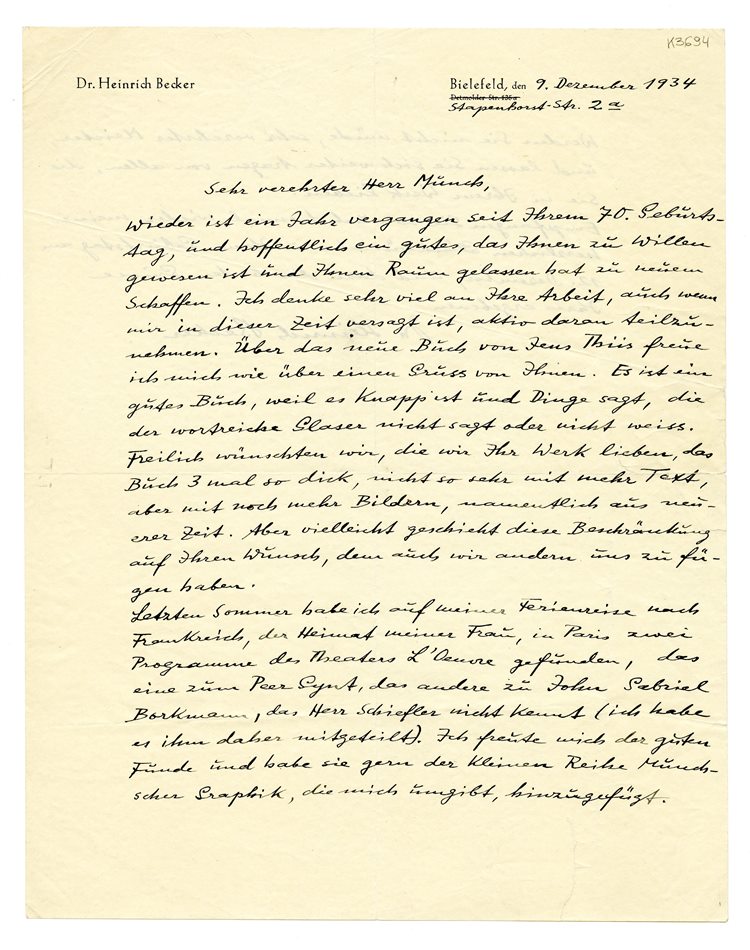 K3694
Dr. Heinrich Becker
Bielefeld, den 9. Dezember 1934
Detmolder Str. 135a
Stapenhorst-Str. 2a
Sehr verehrter Herr Munch,
Wieder ist ein Jahr vergangen seit Ihrem 70. Geburts-
tag, und hoffentlich ein gutes, das Ihnen zu Willen
gewesen ist und Ihnen Raum gelassen hat zu neuem
Schaffen. Ich denke sehr viel an Ihre Arbeit, auch wenn
mir in dieser Zeit versagt ist, aktiv daran teilzu-
nehmen. Über das neue Buch von Jens Thiis freue
ich mich wie über einen Gruss von Ihnen. Es ist ein
gutes Buch, weil es knapp ist und Dinge sagt, die
der wortreiche Glaser nicht sagt oder nicht weiss.
Freilich wünschten wir, die wir Ihr Werk lieben, das
Buch 3 mal so dick, nicht so sehr mit mehr Text,
aber mit noch mehr Bildern, namentlich aus neu-
erer Zeit. Aber vielleicht geschieht diese Beschränkung
auf Ihren Wunsch, dem auch wir andern uns zu fü-
gen haben.
Letzten Sommer habe ich auf meiner Ferienreise nach
Frankreich, der Heimat meiner Frau, in Paris zwei
Programme des Theaters L'Oeuvre gefunden, das
eine zum Peer Gynt, das andere zu John Gabriel
Borkmann, das Herr Schiefler nicht kennt (ich habe
es ihm daher mitgeteilt). Ich freute mich der guten
Funde und habe sie gern der kleinen Reihe Munch-
scher Graphik, die mich umgibt, hinzugefügt.